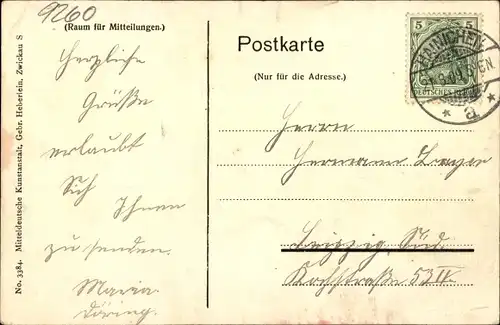 9260
(Raum für Mitteilungen.)
Herzliche
Grüße
erlaubt
Sich Ihnen
zu senden.
Maria
Döring.
No. 3384. Mitteldeutsche Kunstanstalt, Gebr. Heberlein, Zwickau S
Postkarte
(Nur für die Adresse.)
5 5
DEUTSCHES REICH
a
Herrn
Hermann
Leipzig Süd.
Kochstraße 53 IV.